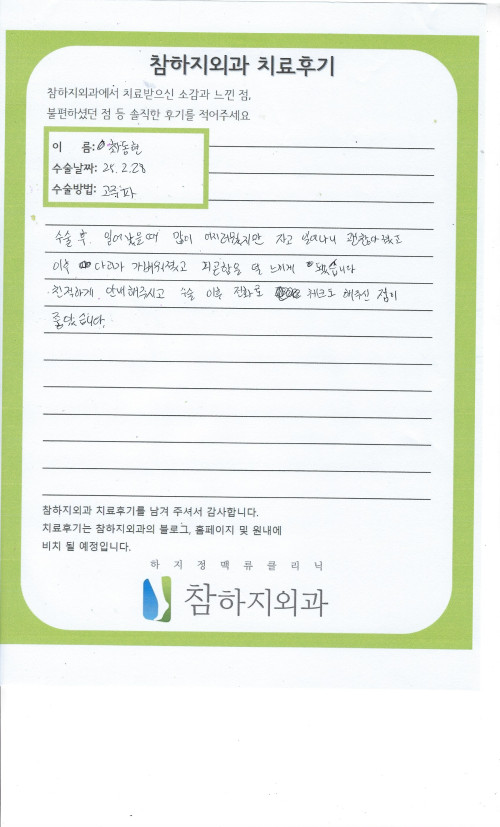 참하지외과 치료후기
참하지외과에서 치료받으신 소감과 느낀 점,
불편하셨던 점 등 솔직한 후기를 적어주세요
이 름: 최동현
수술날짜: 25. 2. 28
수술방법: 고주파
수술 후 일어났을때 앞이 어지러웠지만 자고 일어나니 괜찮아졌고
이후 다리가 가벼워졌고 피곤함을 덜 느끼게 됐습니다
친절하게 안내해주시고 수술 이후 전화로 체크도 해주신 점이
좋았습니다.
참하지외과 치료후기를 남겨 주셔서 감사합니다.
치료후기는 참하지외과의 블로그, 홈페이지 및 원내에
비치 될 예정입니다.
하지정맥류클리닉
참하지외과